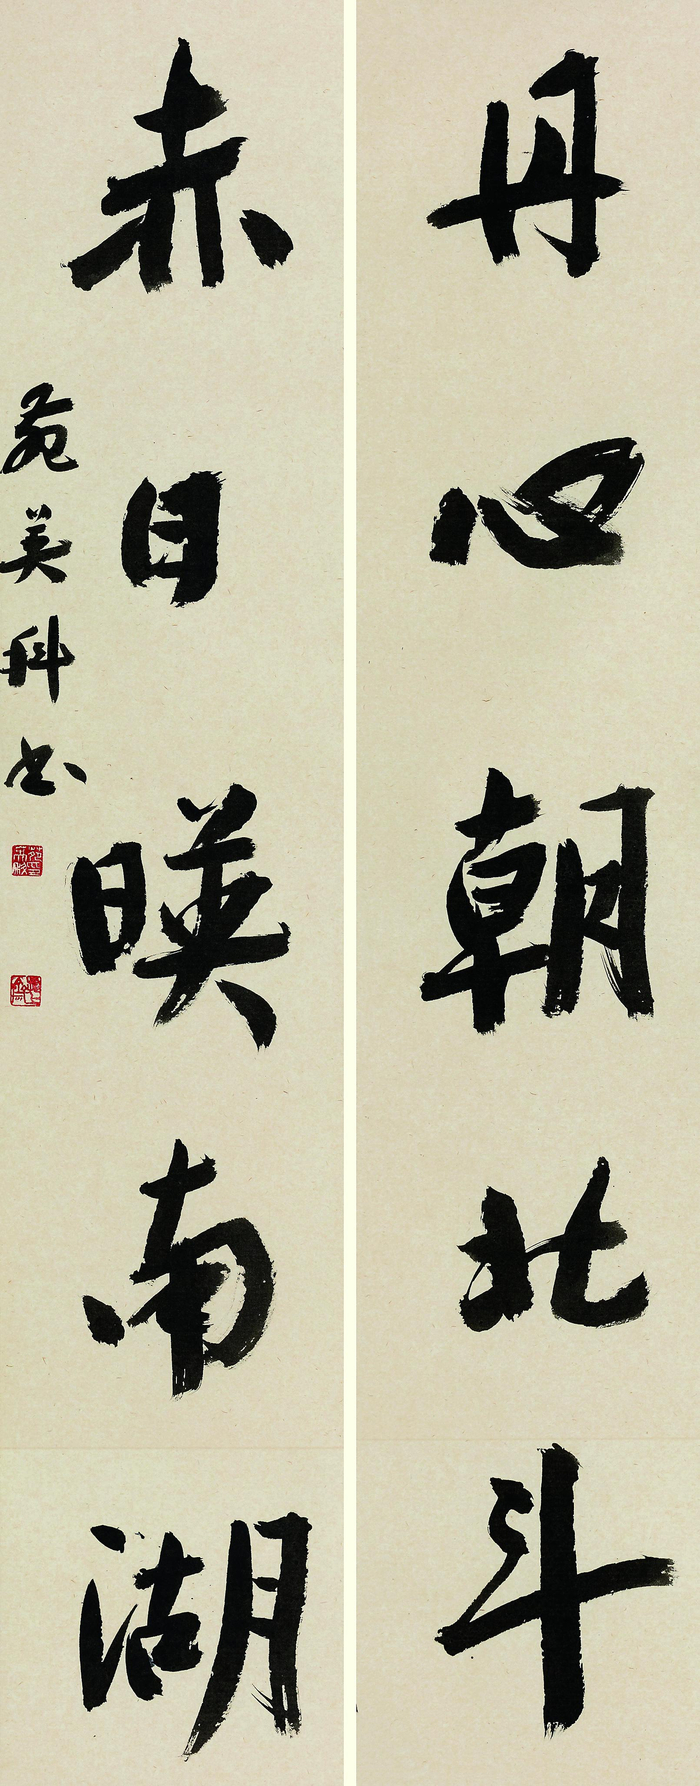 丹心朝北斗
赤日暎南湖
苑美科书